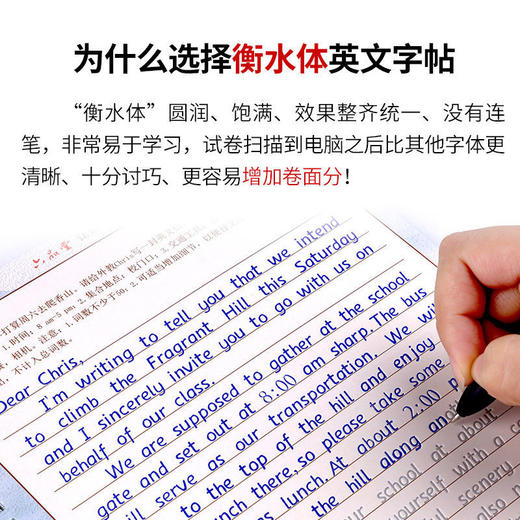 为什么选择衡水体英文字帖
“衡水体”圆润、饱满、效果整齐统一、没有连
笔，非常易于学习，试卷扫描到电脑之后比其他字体更
清晰、十分讨巧、更容易增加卷面分！
六品堂
打算周六去爬香山，请给外教Chris写一封
1.时间：8 am-5 pm 2.集合地点：校门口 3.交通工具
相机。注意：1.词数不少于50；2.可适当增加细节，以使
不计入总词数。
Dear Chris,
I'm writing to tell you that we intend
to climb the Fragrant Hill this Saturday
and I sincerely invite you to go with us on
behalf of our class.
We are supposed to gather at the school
gate and set out at 8:00 am sharp. The bus
will serve as our transportation. We wi
to the top of the hill and enjoy
unch there, so please take some
s lunch. At about 2:00 p
the hill along an
our school at about
yourself with a co
scenery